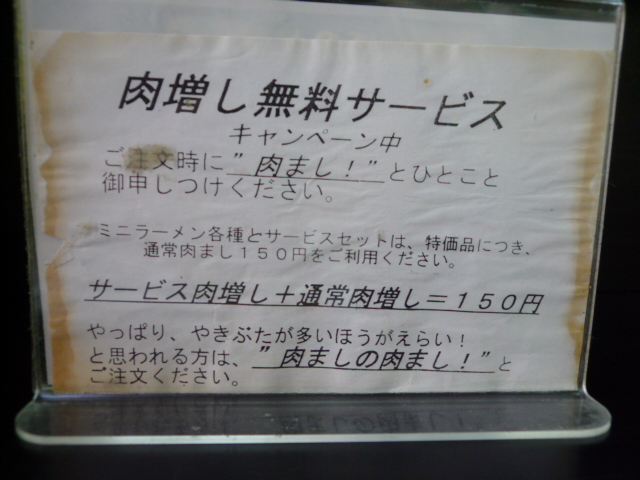 肉増し無料サービス
キャンペーン中
ご注文時に”肉まし！”とひとこと
御申しつけください。
ミニラーメン各種とサービスセットは、特価品につき、
通常肉まし１５０円をご利用ください。
サービス肉増し＋通常肉増し＝１５０円
やっぱり、やきぶたが多いほうがえらい！
と思われる方は、”肉ましの肉まし！”と
ご注文ください。